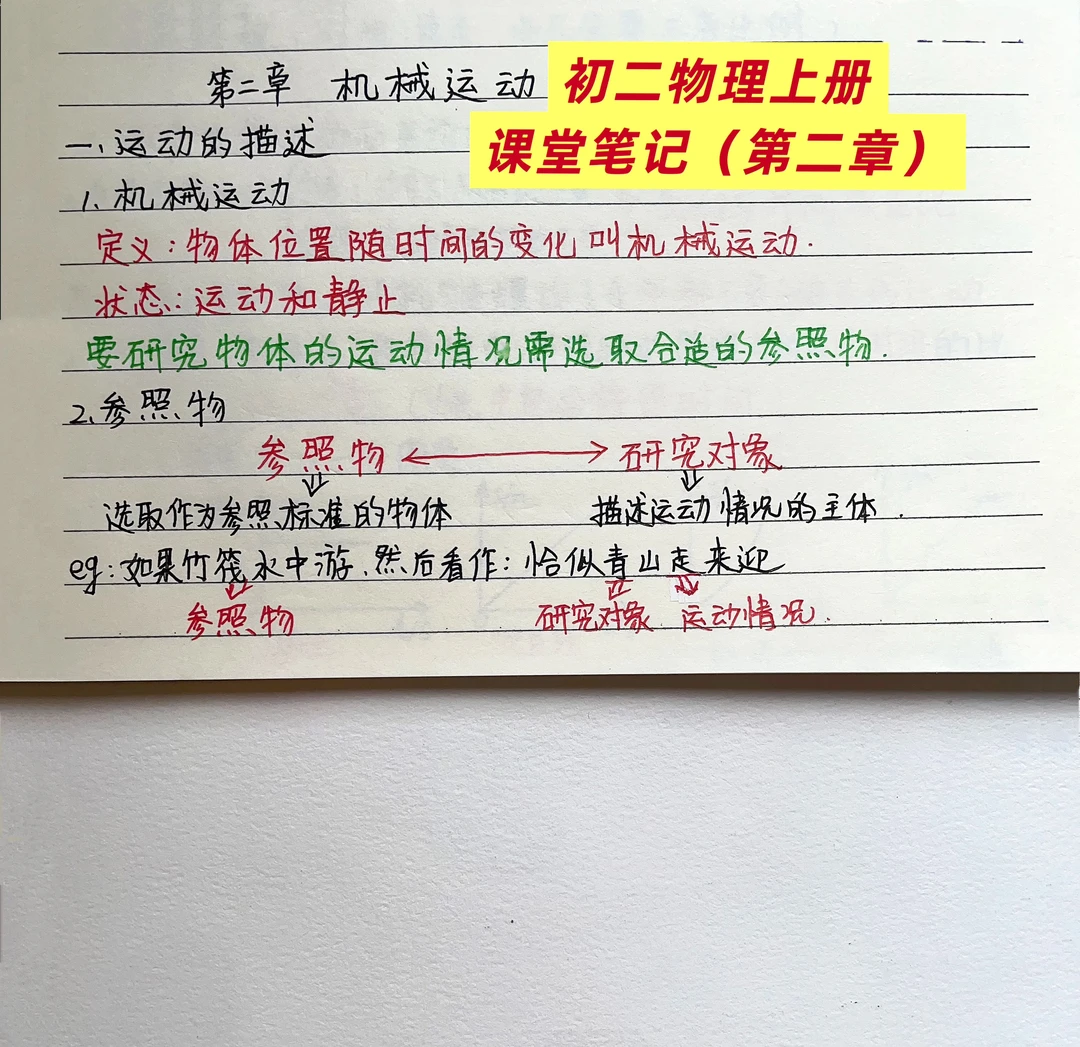 第二章 机械运动
初二物理上册
课堂笔记（第二章）
一、运动的描述
1、机械运动
定义:物体位置随时间的变化叫机械运动.
状态:运动和静止
要研究物体的运动情况需选取合适的参照物.
2、参照物
参照物 ⟷ 研究对象
选取作为参照标准的物体 描述运动情况的主体.
eg:如果竹筏水中游、然后看作:恰似青山走来迎
参照物 研究对象 运动情况.